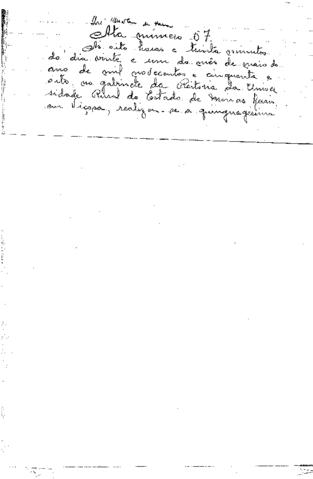 Ata numero 57
As oito horas e trinta minutos
do dia vinte e um do mês de maio do
ano de mil novecentos e cinquenta e
oito, no gabinete da Reitoria da Univer
sidade Rural do Estado de Minas Gerais
em Viçosa, realizou-se a quinquagésima